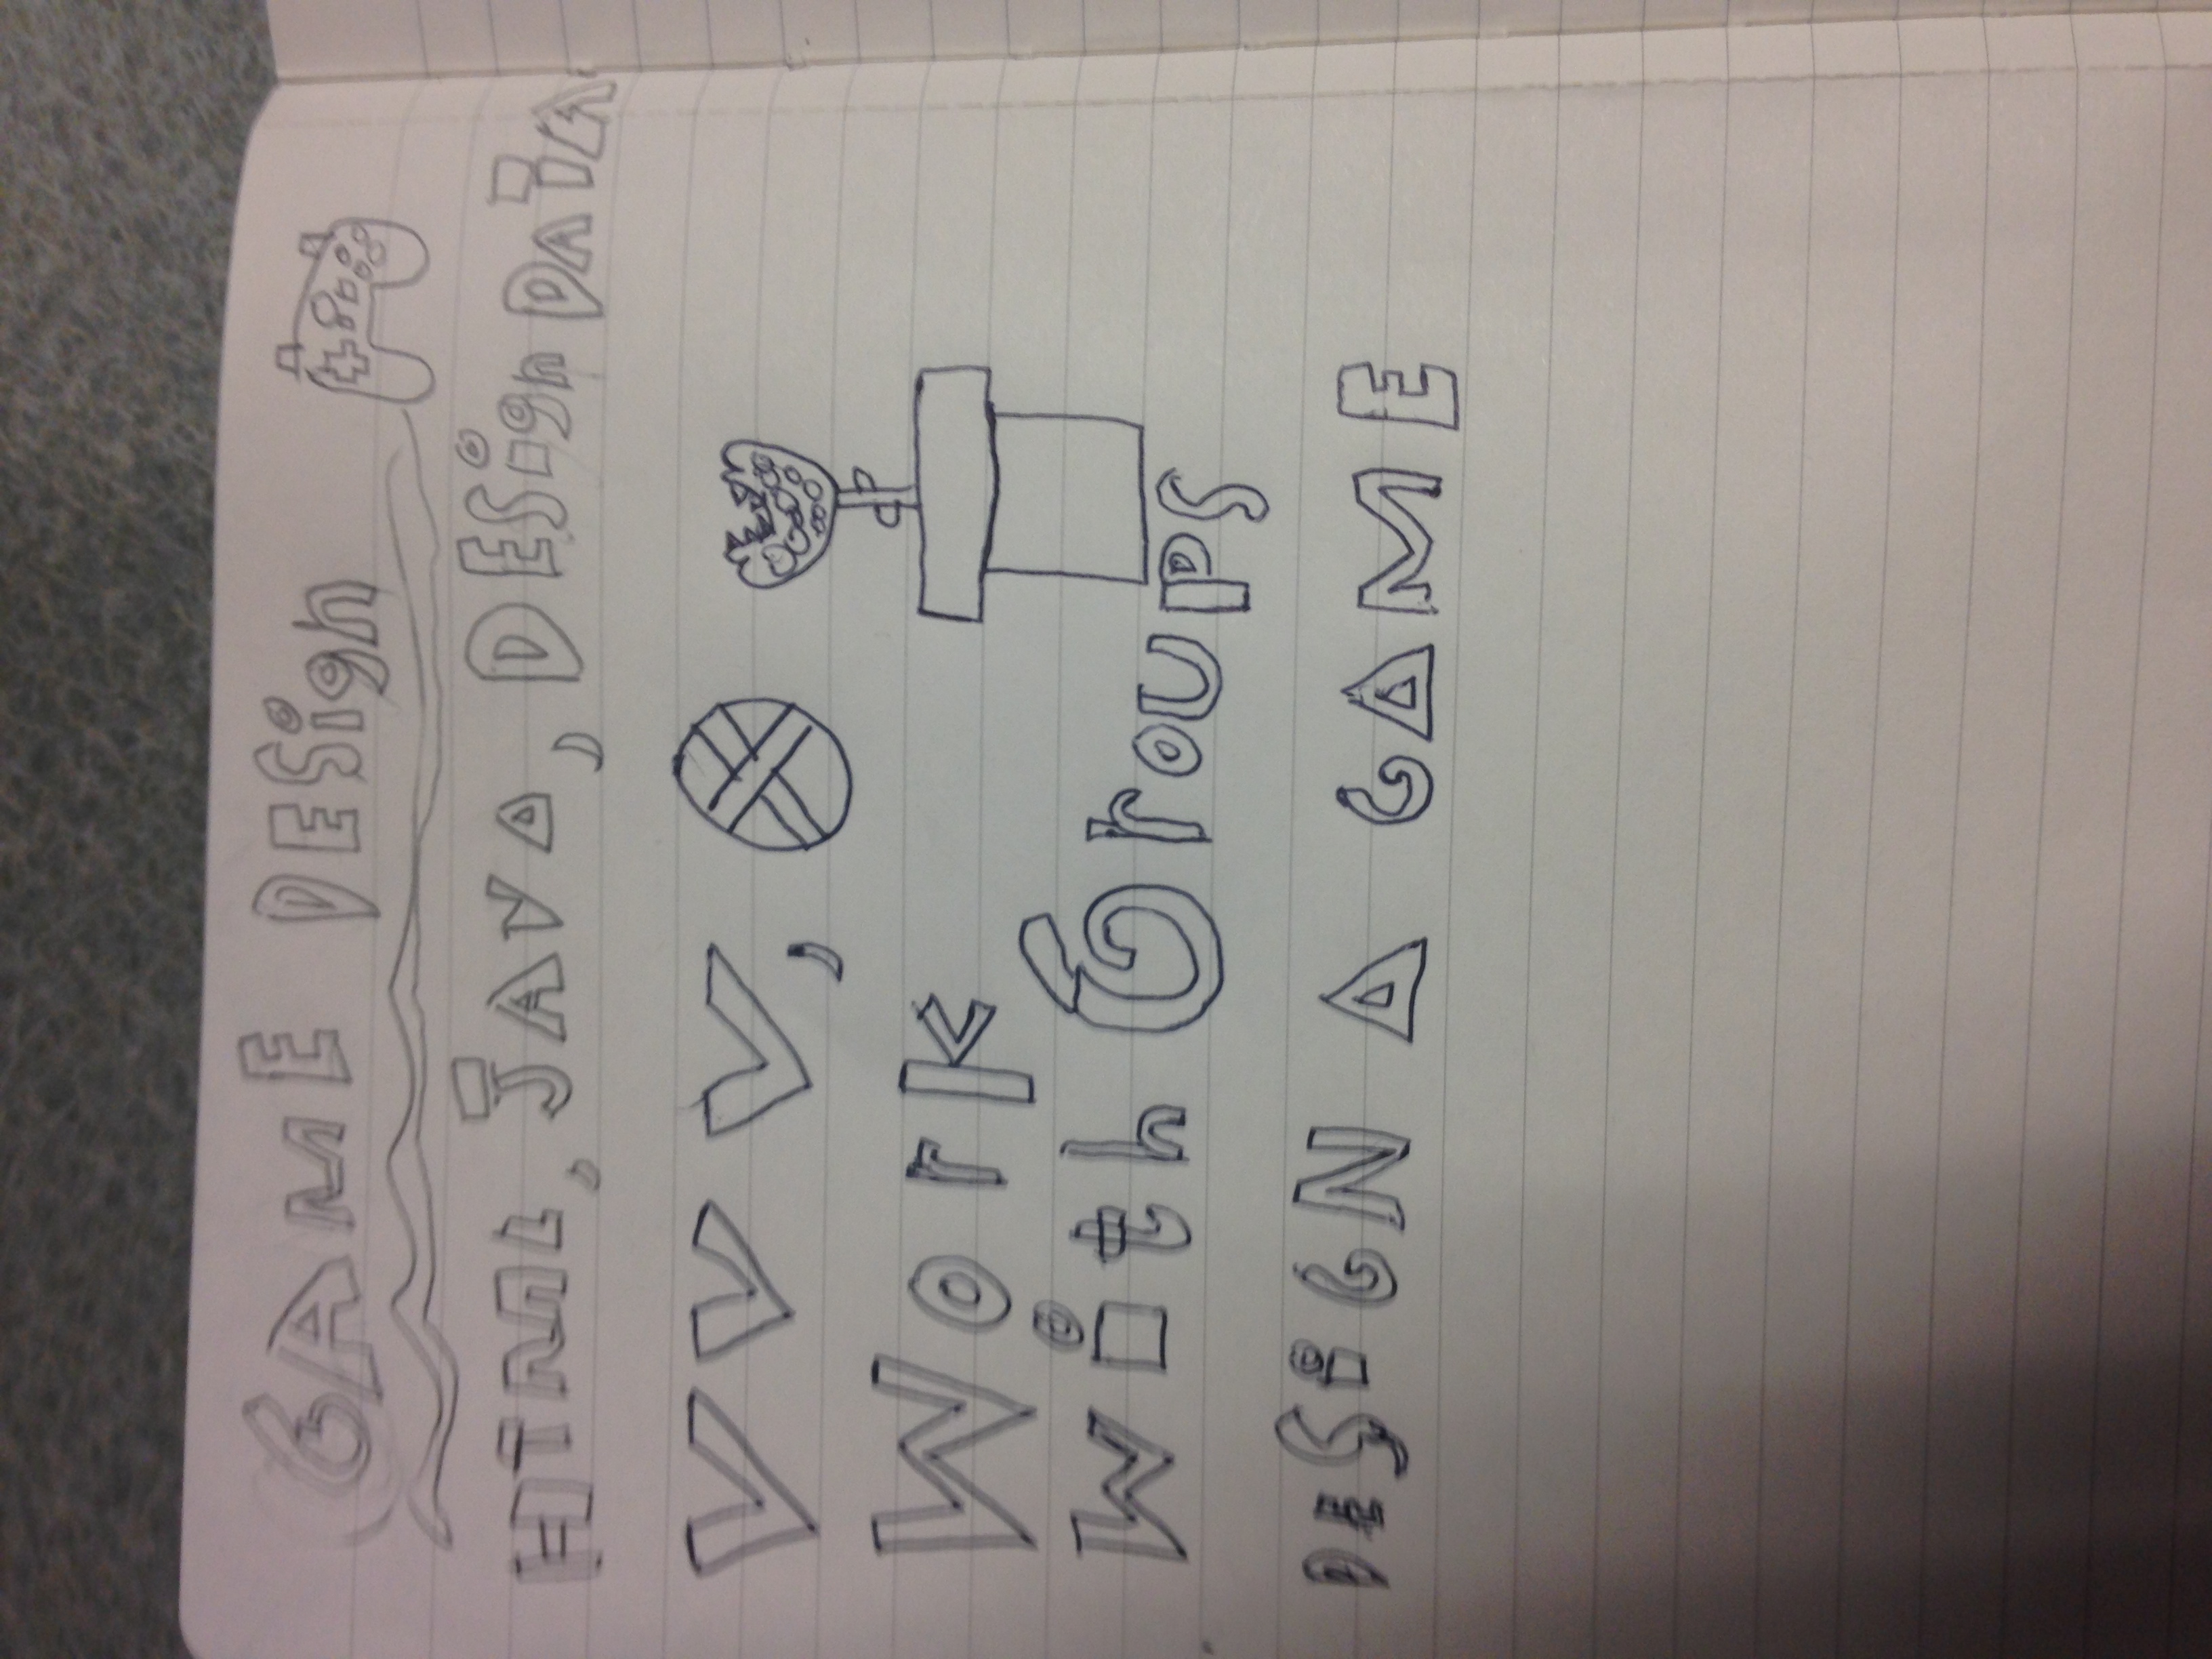 GAME DESign
HTML, JAVA, DESign DATA.
V V V,
Work
with Groups
DESiGN A GAME